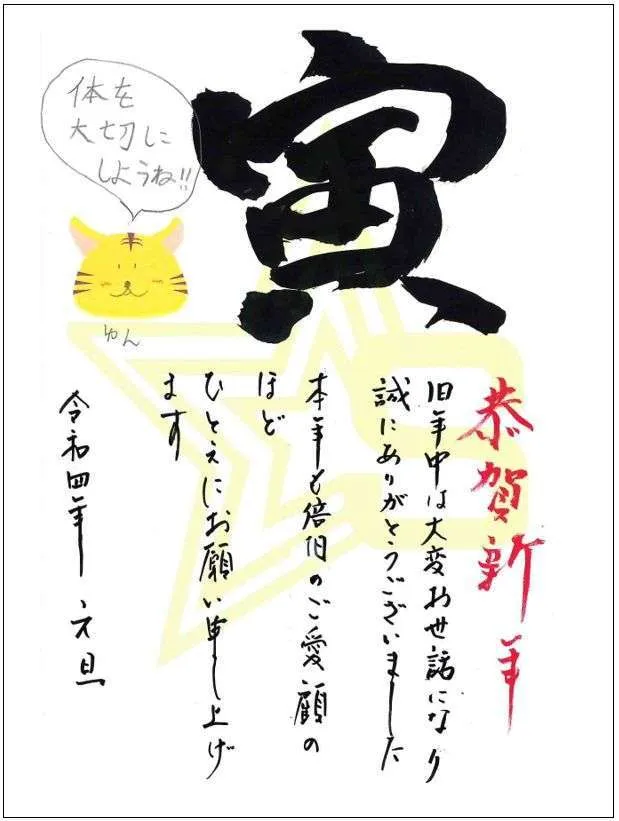 寅
体を
大切に
しようね!!
ゆん
恭賀新年
旧年中は大変お世話になり
誠にありがとうございました
本年も倍旧のご愛顧の
ほど
ひとえにお願い申し上げ
ます
令和四年 元旦